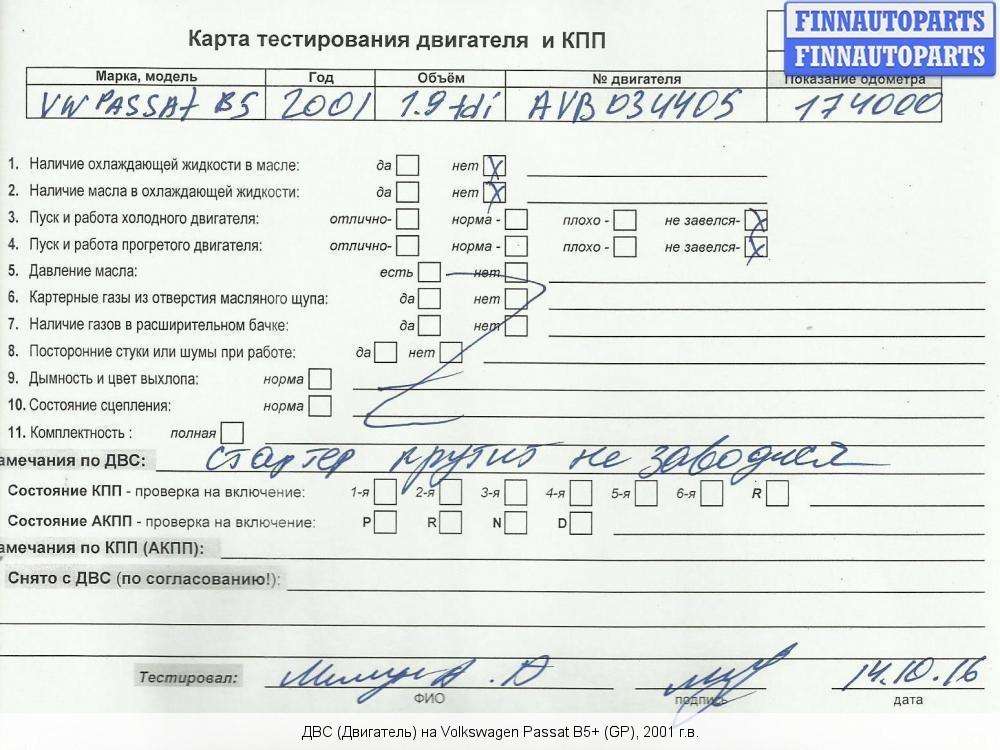 FINNAUTOPARTS
FINNAUTOPARTS
Карта тестирования двигателя и КПП
Марка, модель Год Объём № двигателя Показание одометра
VW PASSAT B5 2001 1.9 tdi AVB 034405 174000
1. Наличие охлаждающей жидкости в масле: да нет X
2. Наличие масла в охлаждающей жидкости: да нет X
3. Пуск и работа холодного двигателя: отлично- норма - плохо - не завелся- X
4. Пуск и работа прогретого двигателя: отлично- норма - плохо - не завелся- X
5. Давление масла: есть нет
6. Картерные газы из отверстия масляного щупа: да нет
7. Наличие газов в расширительном бачке: да нет
8. Посторонние стуки или шумы при работе: да нет
9. Дымность и цвет выхлопа: норма
10. Состояние сцепления: норма
11. Комплектность : полная
амечания по ДВС: стартер крутит не заводится
Состояние КПП - проверка на включение: 1-я 2-я 3-я 4-я 5-я 6-я R
Состояние АКПП - проверка на включение: P R N D
амечания по КПП (АКПП):
Снято с ДВС (по согласованию!):
Тестировал: 14.10.16
ФИО подпись дата
ДВС (Двигатель) на Volkswagen Passat B5+ (GP), 2001 г.в.